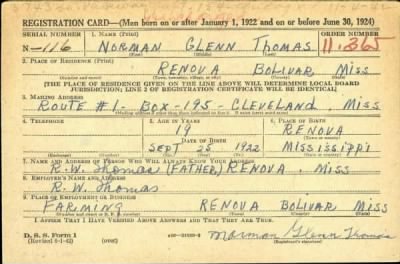 REGISTRATION CARD—(Men born on or after January 1, 1922 and on or before June 30, 1924)
SERIAL NUMBER 1. NAME (Print) ORDER NUMBER
N-116 NORMAN GLENN THOMAS 11,365
2. PLACE OF RESIDENCE (Print)
RENOVA BOLIVAR MISS
[THE PLACE OF RESIDENCE GIVEN ON THE LINE ABOVE WILL DETERMINE LOCAL BOARD
JURISDICTION; LINE 2 OF REGISTRATION CERTIFICATE WILL BE IDENTICAL]
3. MAILING ADDRESS
ROUTE #1- BOX-195- CLEVELAND, MISS
4. TELEPHONE 5. AGE IN YEARS 6. PLACE OF BIRTH
19 RENOVA
DATE OF BIRTH
SEPT 25 1922 MISSISSIPPI
7. NAME AND ADDRESS OF PERSON WHO WILL ALWAYS KNOW YOUR ADDRESS
R.W. Thomas (FATHER) RENOVA, MISS
8. EMPLOYER'S NAME AND ADDRESS
R.W. Thomas
9. PLACE OF EMPLOYMENT OR BUSINESS
FARMING RENOVA BOLIVAR MISS
I AFFIRM THAT I HAVE VERIFIED ABOVE ANSWERS AND THAT THEY ARE TRUE.
D. S. S. Form 1
(Revised 6-1-42) (over) Norman Glenn Thomas
(Registrant's signature)